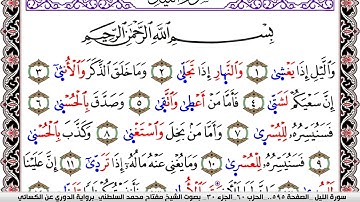 بِسْمِ اللَّهِ الرَّحْمَٰنِ الرَّحِيمِ
وَالَّيْلِ إِذَا يَغْشَىٰ ١ وَالنَّهَارِ إِذَا تَجَلَّىٰ ٢ وَمَا خَلَقَ الذَّكَرَ وَالْأُنثَىٰ ٣
إِنَّ سَعْيَكُمْ لَشَتَّىٰ ٤ فَأَمَّا مَنْ أَعْطَىٰ وَاتَّقَىٰ ٥ وَصَدَّقَ بِالْحُسْنَىٰ ٦
فَسَنُيَسِّرُهُ لِلْيُسْرَىٰ ٧ وَأَمَّا مَنْ بَخِلَ وَاسْتَغْنَىٰ ٨ وَكَذَّبَ بِالْحُسْنَىٰ
٩ فَسَنُيَسِّرُهُ لِلْعُسْرَىٰ ١٠ وَمَا يُغْنِي عَنْهُ مَالُهُ إِذَا تَرَدَّىٰ ١١ إِنَّ عَلَيْنَا
سورة الليل الصفحة ٥٩٥.. الحزب ٦٠ الجزء ٣٠. بصوت الشيخ مفتاح محمد السلطني برواية الدوري عن الكسائي